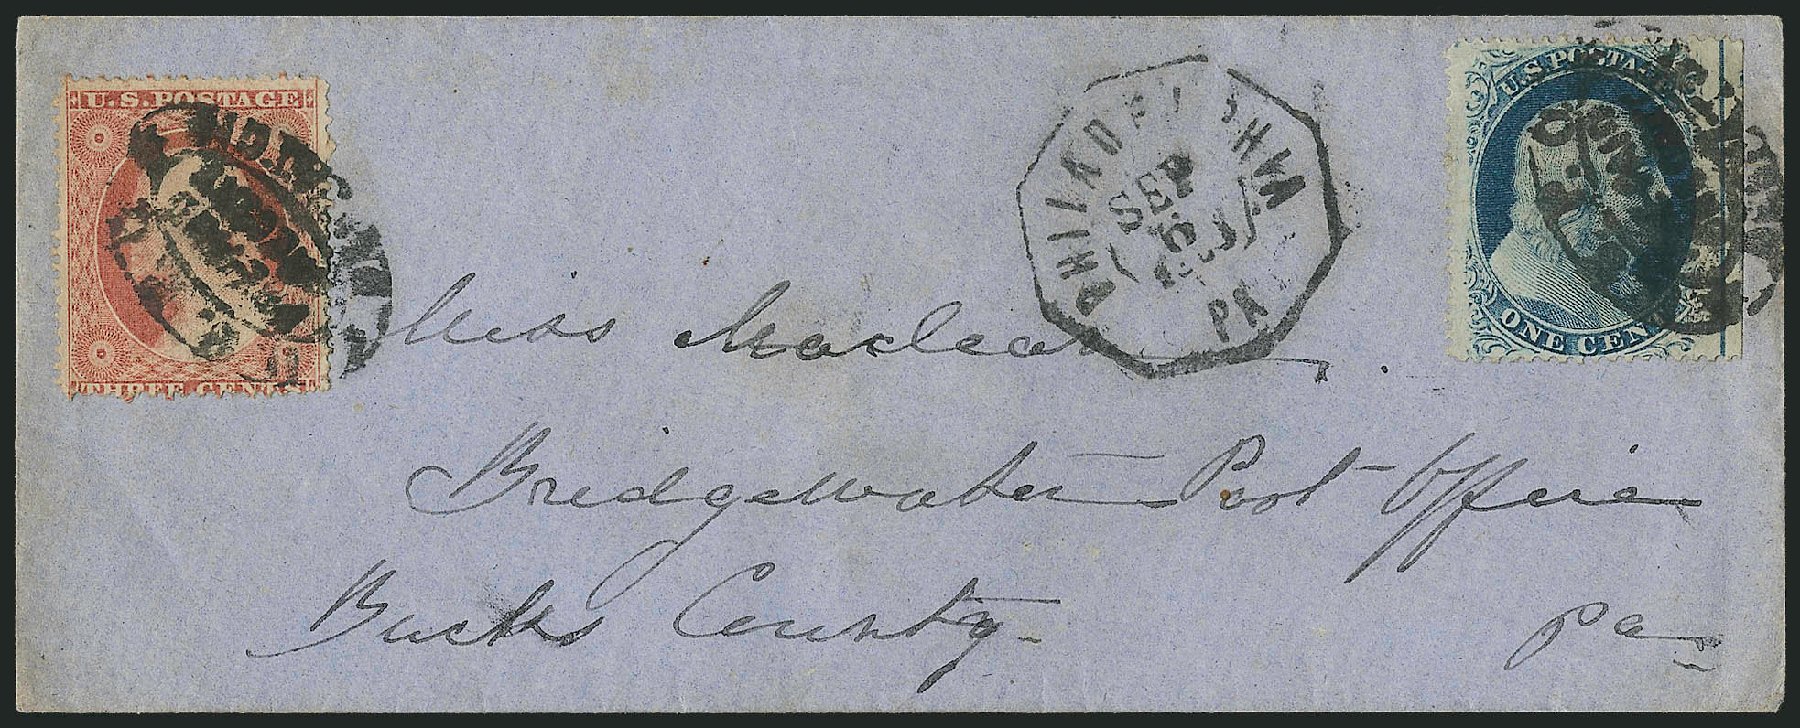 U.S. POSTAGE
THREE CENTS
PHILADELPHIA
SEP
PA
U.S. POSTAGE
ONE CENT
Miss Maclean
Bridgewater Post Office
Bucks County.
Pa